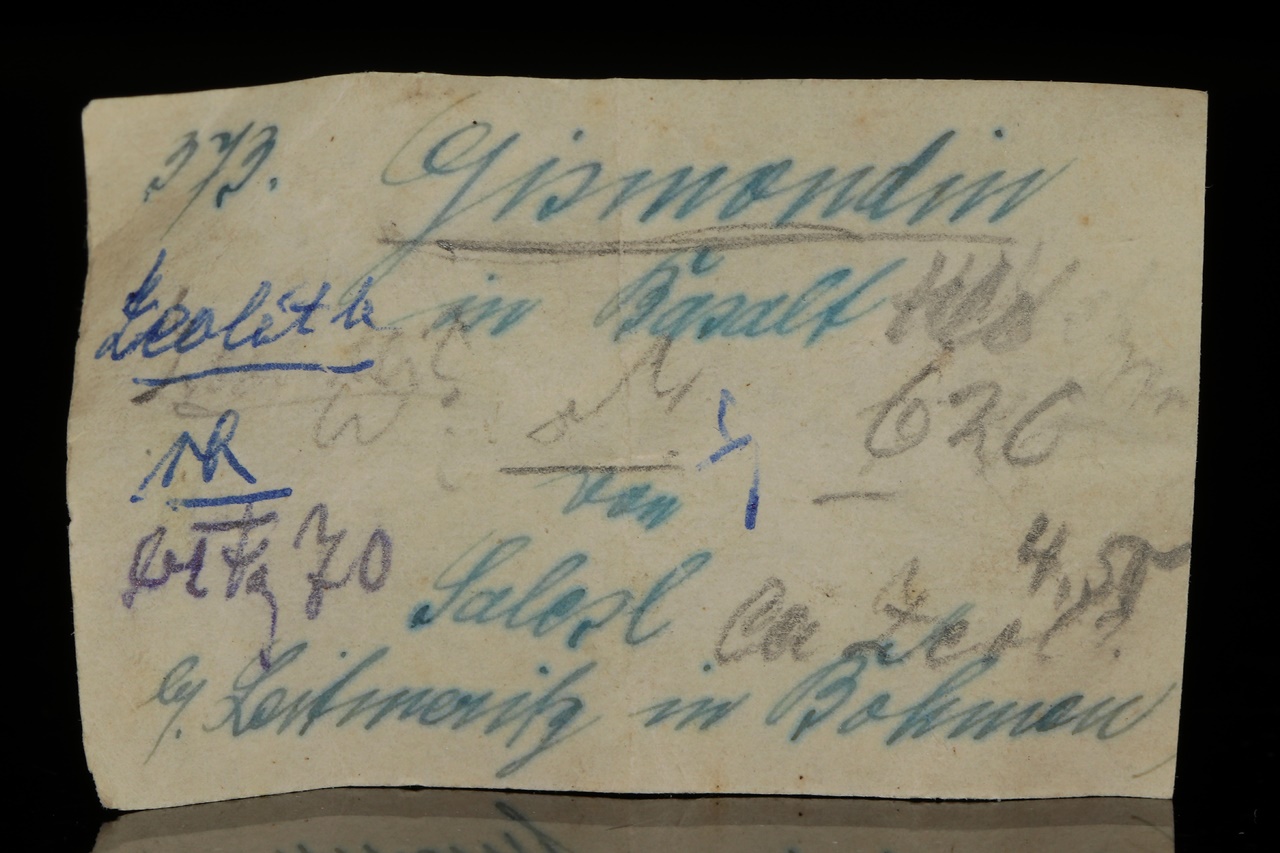 373. Gismondin
Zeolith in Basalt
626
von
70
4,50
Salesl
Ca Zeol.
b/. Leitmeritz in Böhmen